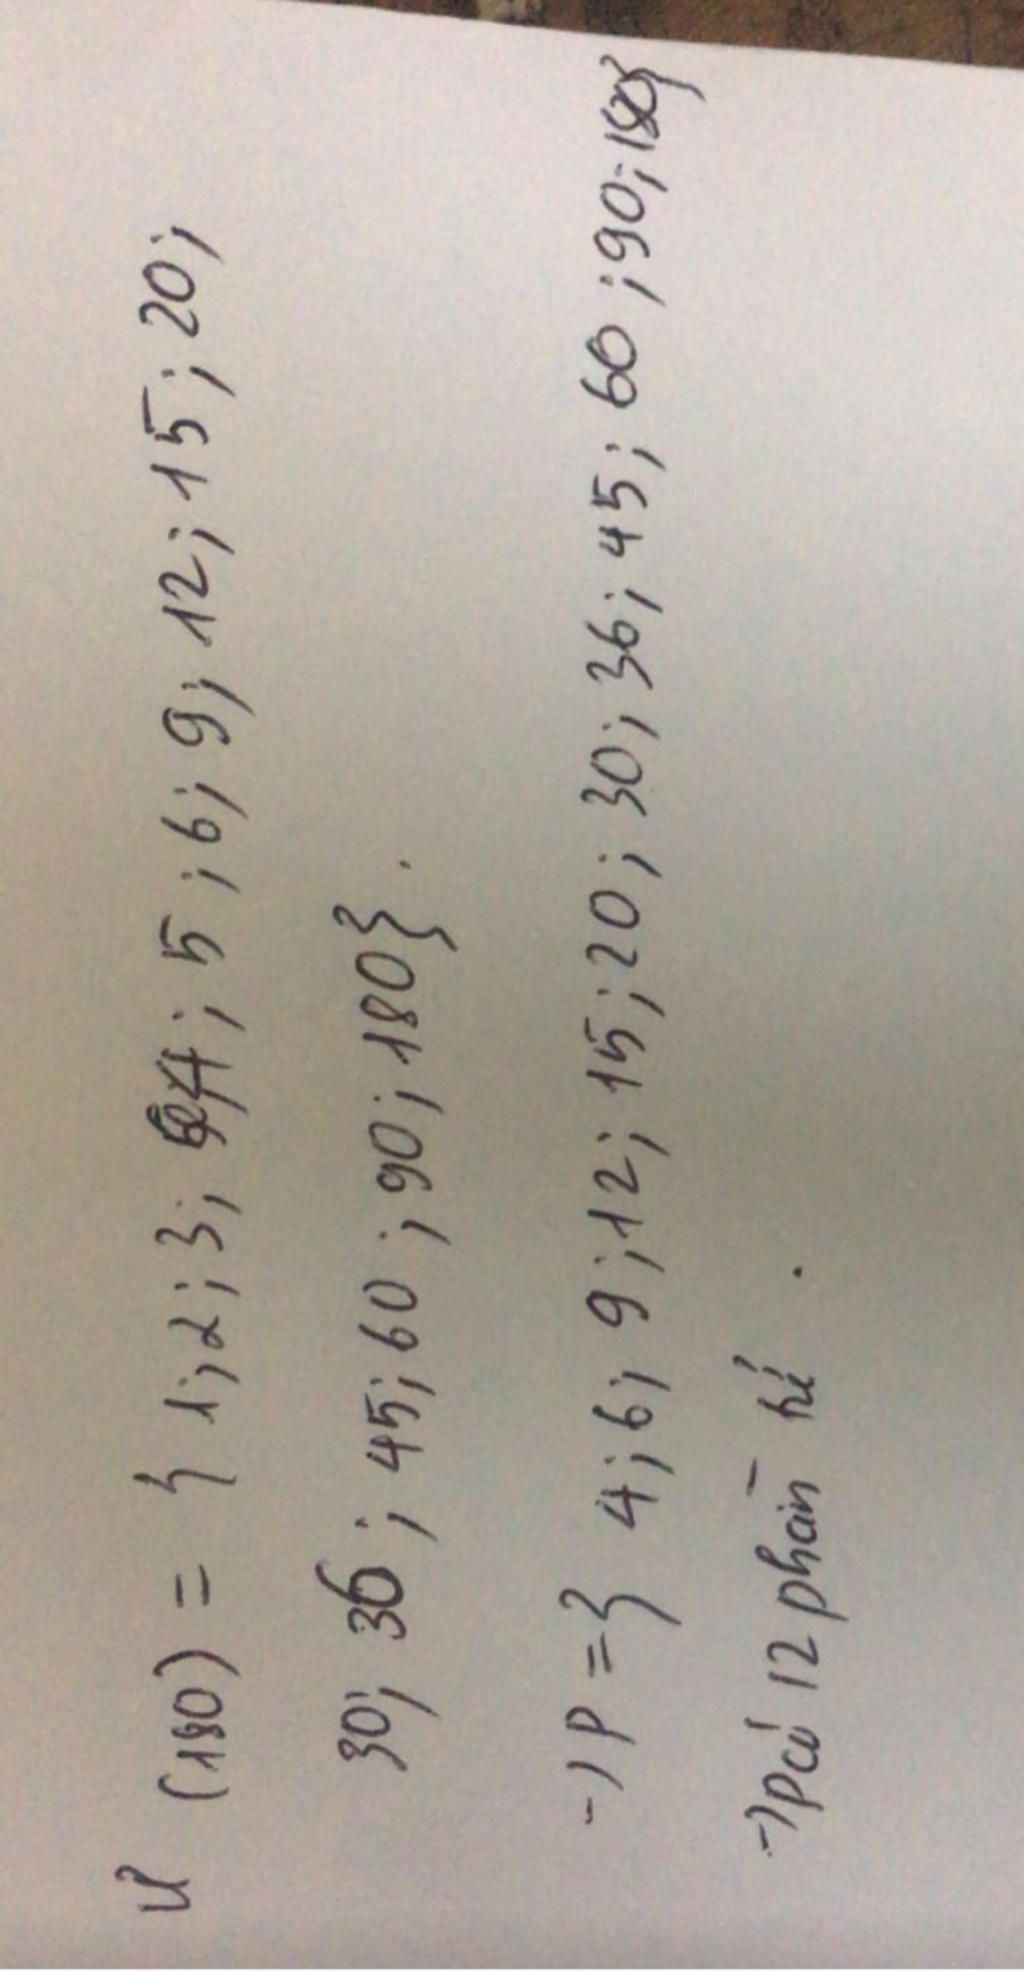 Ư (180) = { 1; 2; 3; 4; 5; 6; 9; 12; 15; 20;
30; 36; 45; 60; 90; 180}.
-) P = { 4; 6; 9; 12; 15; 20; 30; 36; 45; 60; 90; 180}
-) P có 12 phần tử.